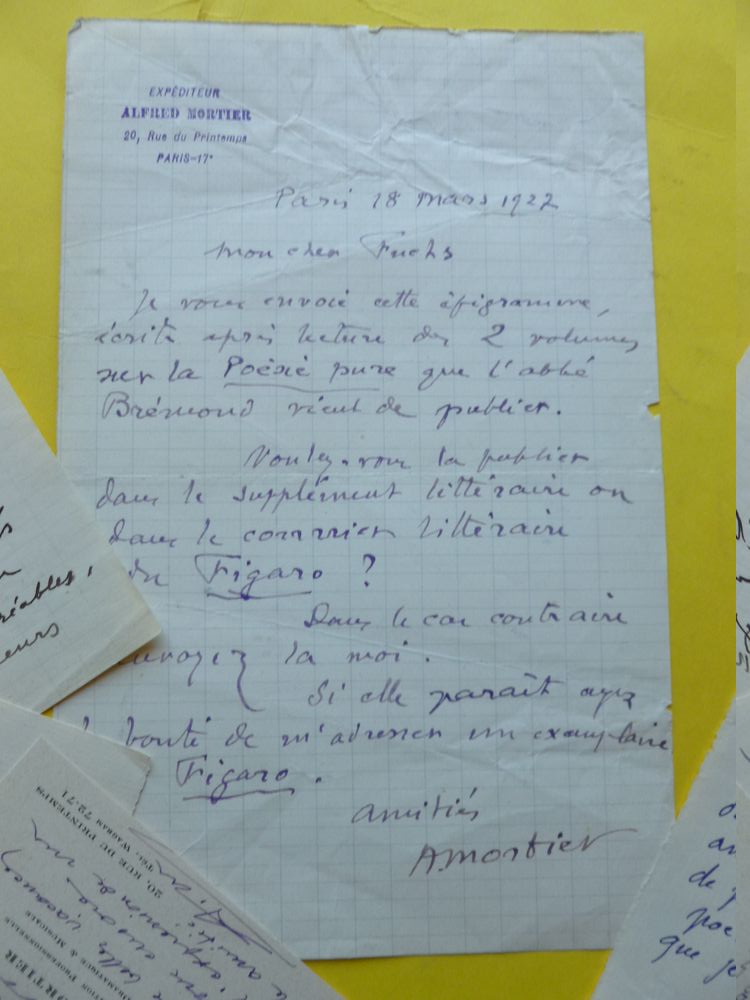 EXPÉDITEUR
ALFRED MORTIER
20, Rue du Printemps
PARIS-17ᵉ
Paris 18 mars 1927
Mon cher Fuchs
Je vous envoie cette épigramme,
écrite après lecture des 2 volumes
sur la Poésie pure que l'abbé
Brémond vient de publier.
Voulez-vous la publier
dans le supplément littéraire ou
dans le courrier littéraire
du Figaro ?
Dans le cas contraire
envoyez la moi.
Si elle paraît ayez
bonté de m'adresser un exemplaire
Figaro.
Amitiés
AMortier
réables,
eurs
20, RUE DU PRINTEMPS
TÉL. WAGRAM 72-71
de
que je